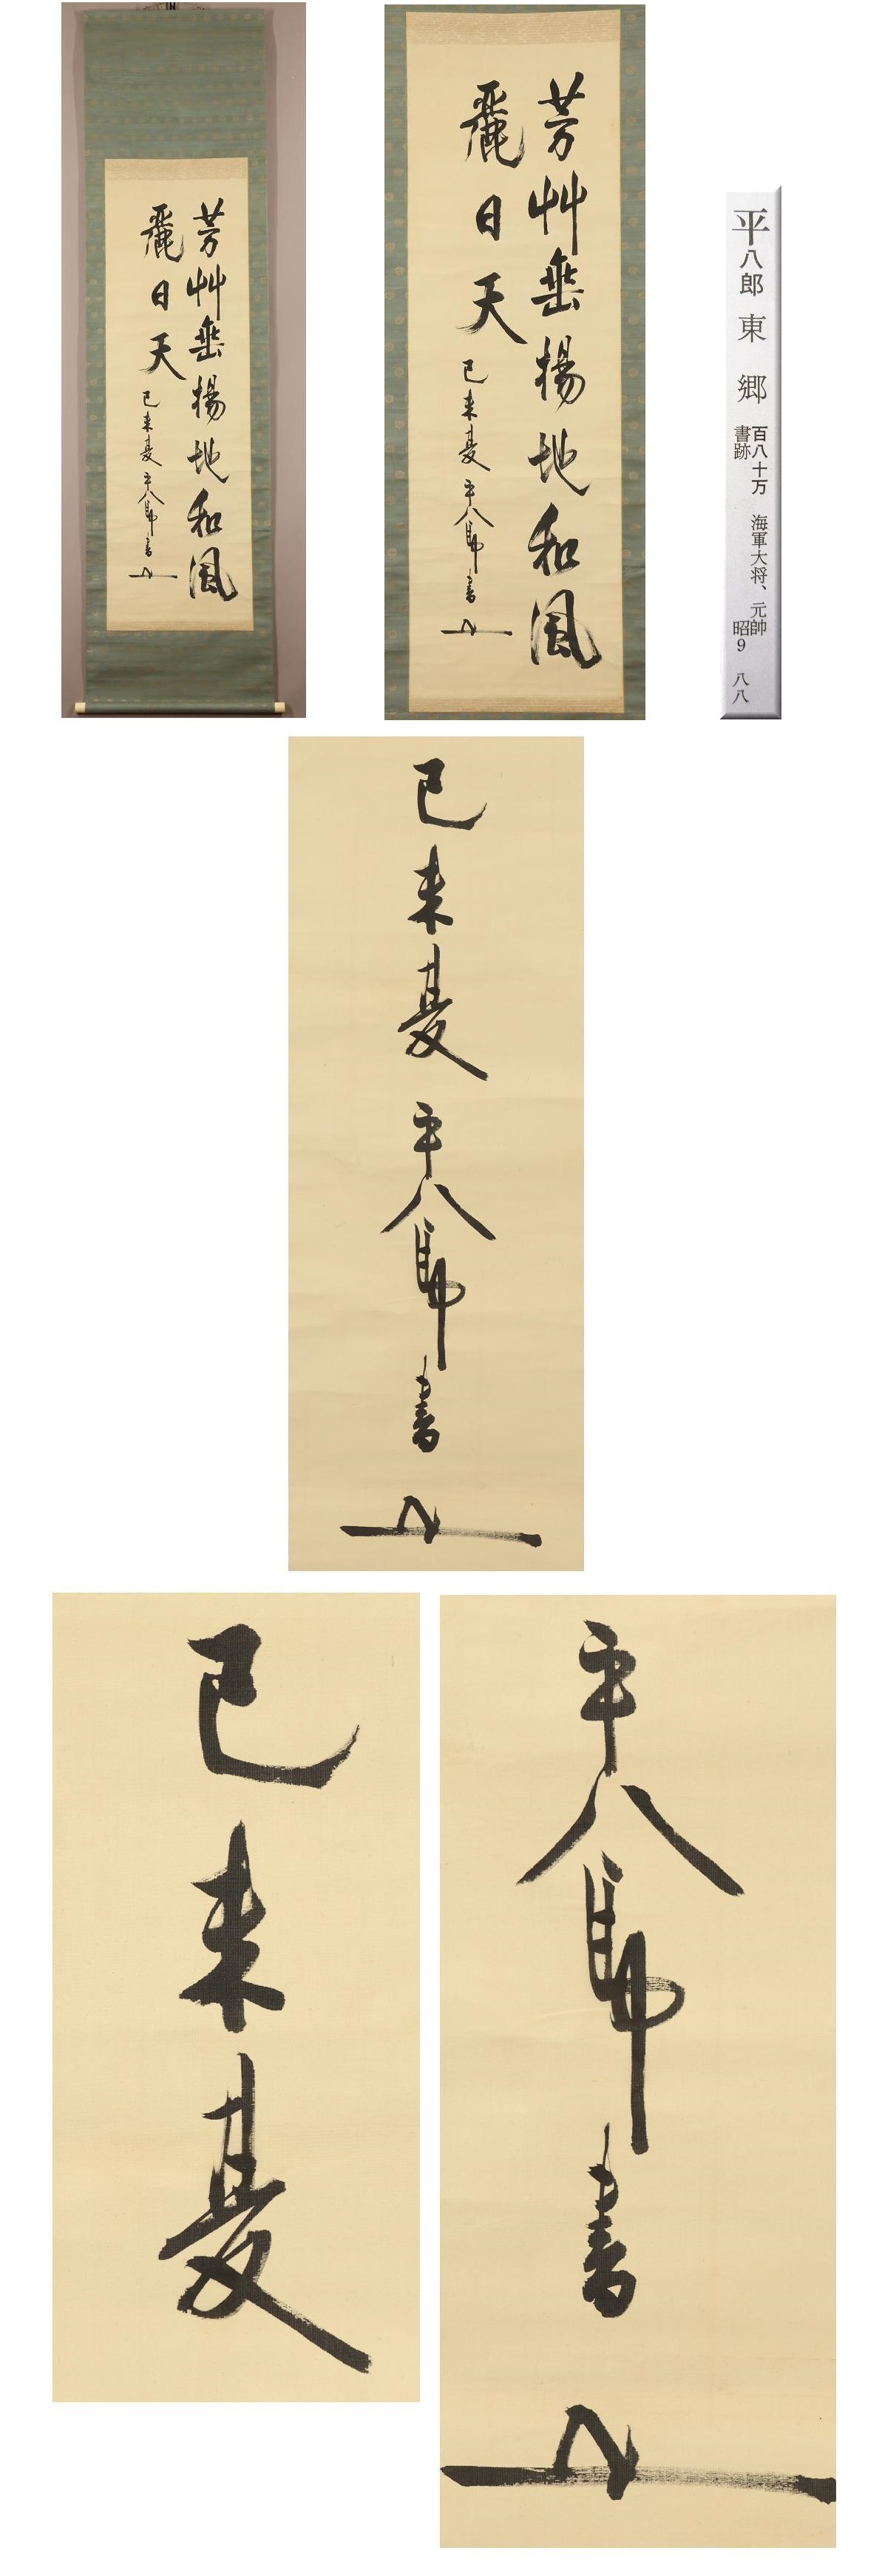 芳艸垂楊地和風
麗日天
己未夏 平八郎書
芳艸垂楊地和風
麗日天
己未夏 平八郎書
平八郎 東郷
百八十万 海軍大将、元帥
書跡 昭9 八八
己未夏 平八郎書
己未夏
平八郎書